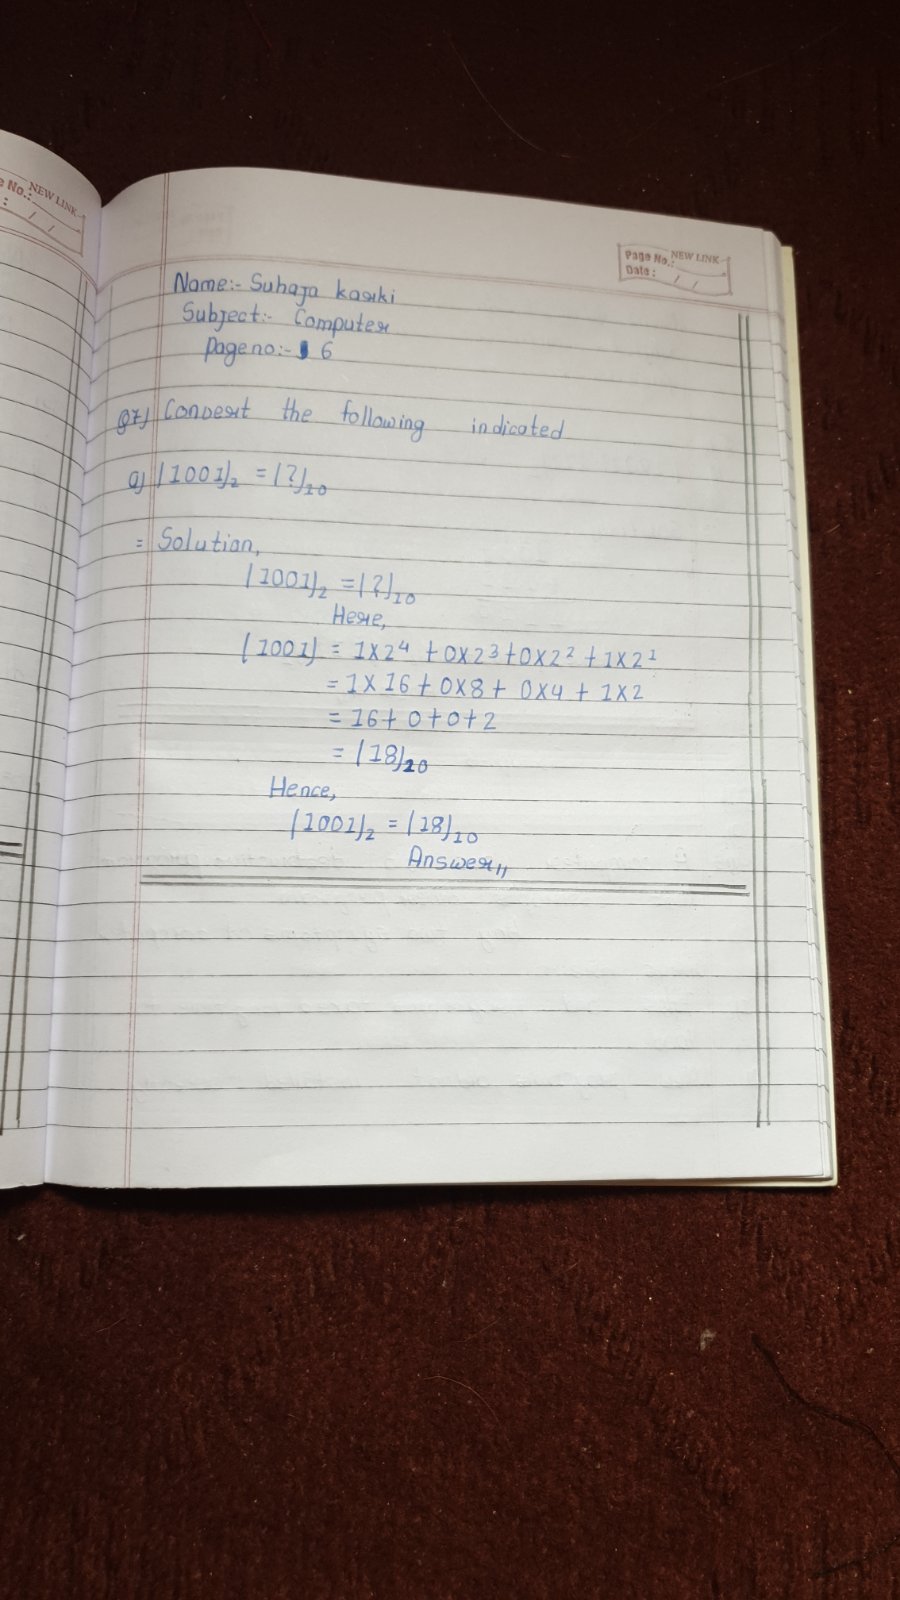 e No.: NEW LINK
: / /
Page No.: NEW LINK
Date: / /
Name:- Suhaja kaski
Subject:- Computer
Page no:- 6
Q7) Convert the following indicated
a) (1001)₂ = (?)₁₀
= Solution,
(1001)₂ = (?)₁₀
Here,
(1001) = 1×2⁴ + 0×2³ + 0×2² + 1×2¹
= 1×16 + 0×8 + 0×4 + 1×2
= 16 + 0 + 0 + 2
= (18)₁₀
Hence,
(1001)₂ = (18)₁₀
Answer,,